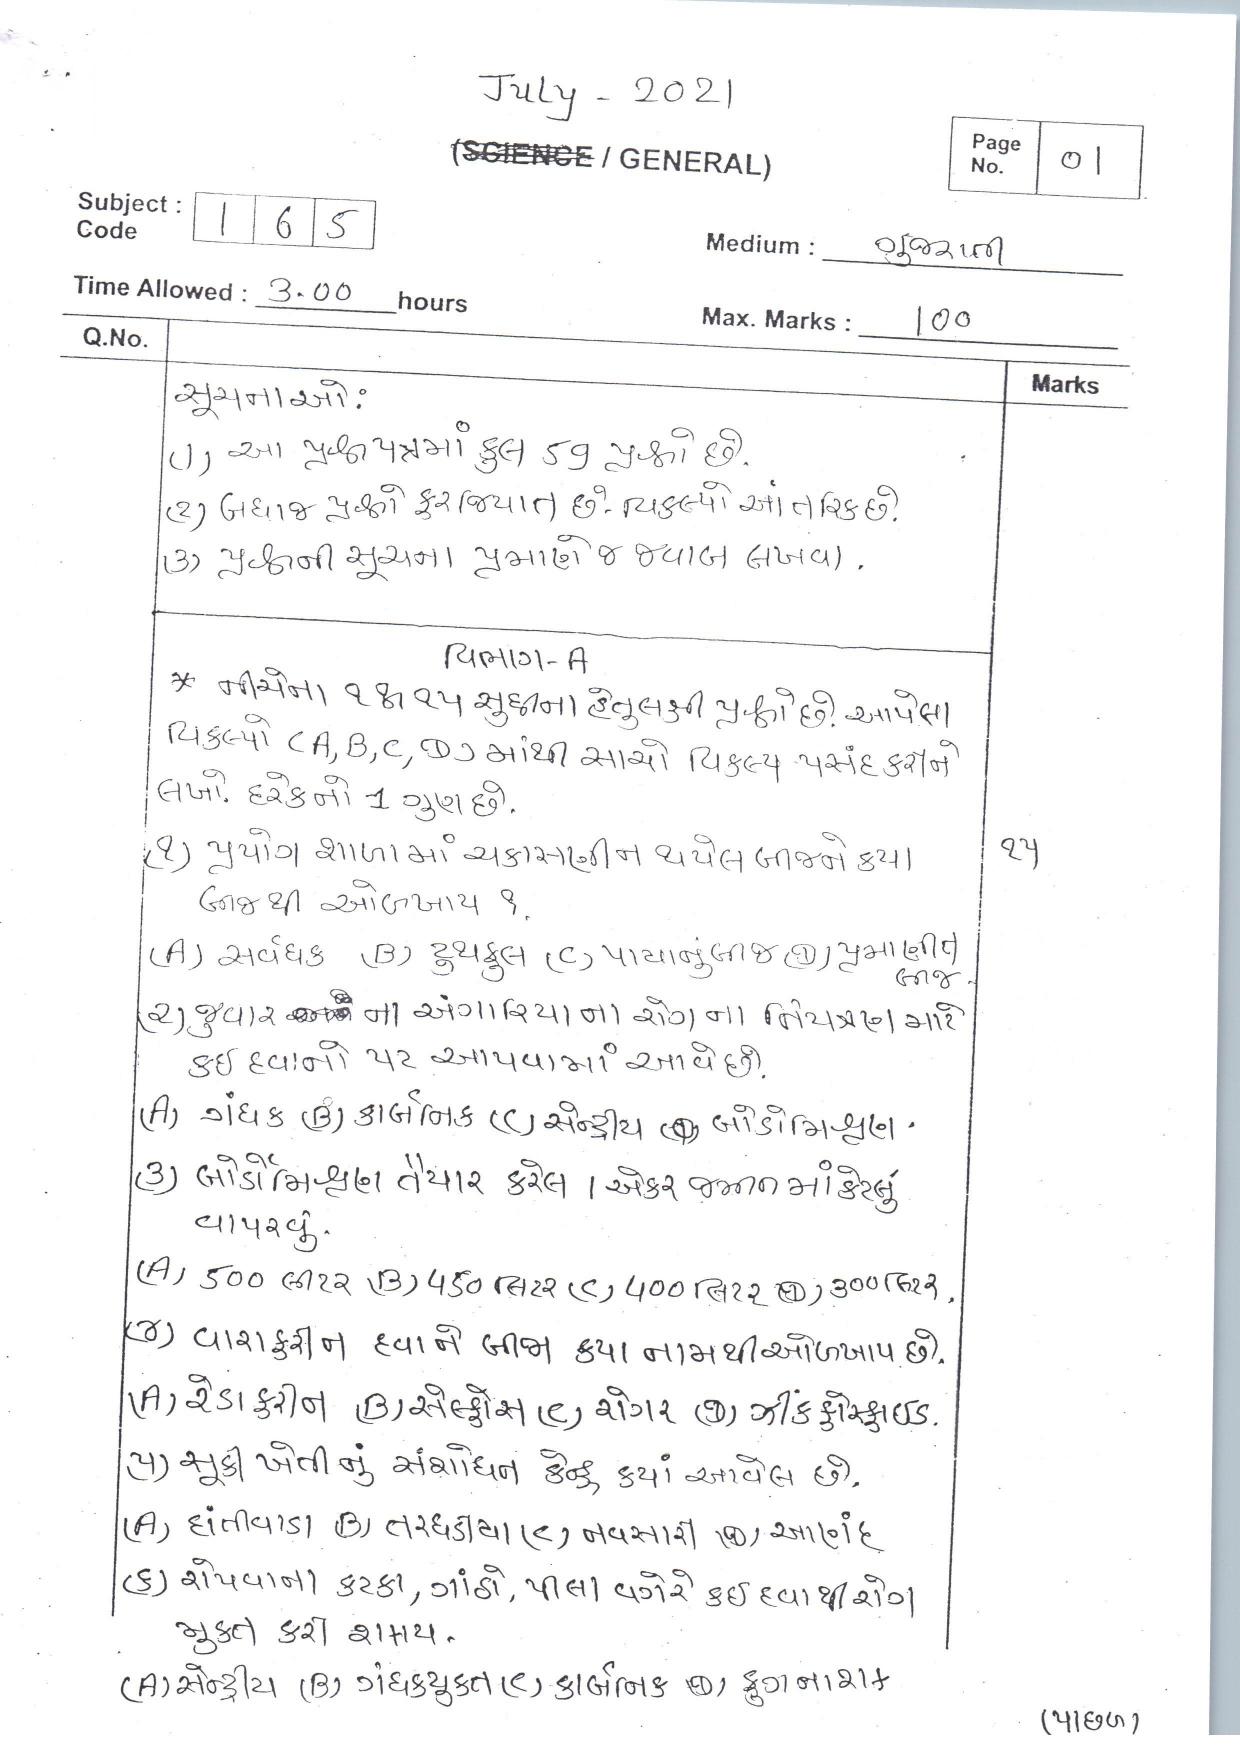 July - 2021
(SCIENCE / GENERAL)
Page No. 01
Subject Code : 1 6 5
Medium : ગુજરાતી
Time Allowed : 3.00 hours
Max. Marks : 100
Q.No.
Marks
સૂચનાઓ:
(૧) આ પ્રશ્નપત્રમાં કુલ 59 પ્રશ્નો છે.
(૨) બધાજ પ્રશ્નો ફરજિયાત છે. વિકલ્પો આંતરિક છે.
(૩) પ્રશ્નની સૂચના પ્રમાણે જ જવાબ લખવા.
વિભાગ-A
* નીચેના ૧ થી ૧૫ સુધીના હેતુલક્ષી પ્રશ્નો છે. આપેલા
વિકલ્પો (A, B, C, D) માંથી સાચો વિકલ્પ પસંદ કરીને
લખો. દરેકનો 1 ગુણ છે.
(૧) પ્રયોગ શાળામાં ચકાસણી ન થયેલ બીજને કયા ૧૫
બીજ થી ઓળખાય ?.
(A) સર્વધક (B) ટ્રુથફુલ (C) પાયાનું બીજ (D) પ્રમાણીત
બીજ.
(૨) જુવાર ના અંગારિયા ના રોગ ના નિયત્રણ માટે
કઈ દવાનો પટ આપવામાં આવે છે.
(A) ગંધક (B) કાર્બનિક (C) સેન્દ્રીય (D) બોર્ડોમિશ્રણ.
(૩) બોર્ડોમિશ્રણ તૈયાર કરેલ 1 એકર જમીનમાં કેટલું
વાપરવું.
(A) 500 લીટર (B) 450 લિટર (C) 400 લિટર (D) 300 લિટર.
(૪) વારાફરીન દવાને બીજા કયા નામથી ઓળખાય છે.
(A) રેડાફરીન (B) સેલ્ફોસ (C) રોગર (D) ઝીંક ફોસ્ફાઇડ.
(૫) સૂકી ખેતીનું સંશોધન કેન્દ્ર કયાં આવેલ છે.
(A) દાંતીવાડા (B) તરઘડીયા (C) નવસારી (D) આણંદ
(૬) રોપવાના કટકા, ગાંઠો, પીલા વગેરે કઈ દવા થી રોગ
મુક્ત કરી શકાય.
(A) સેન્દ્રીય (B) ગંધકયુક્ત (C) કાર્બનિક (D) ફુગનાશક
(પાછળ)